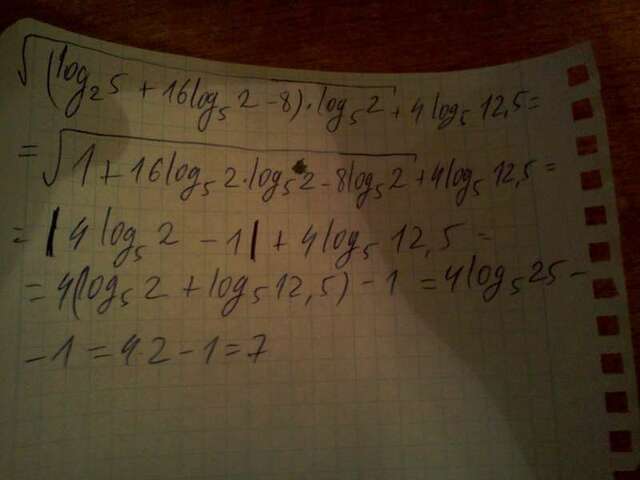 √((log₂5 + 16log₅2 - 8)·log₅2) + 4log₅12,5 =
= √(1 + 16log₅2·log₅2 - 8log₅2) + 4log₅12,5 =
= |4log₅2 - 1| + 4log₅12,5 =
= 4(log₅2 + log₅12,5) - 1 = 4log₅25 -
- 1 = 4·2 - 1 = 7